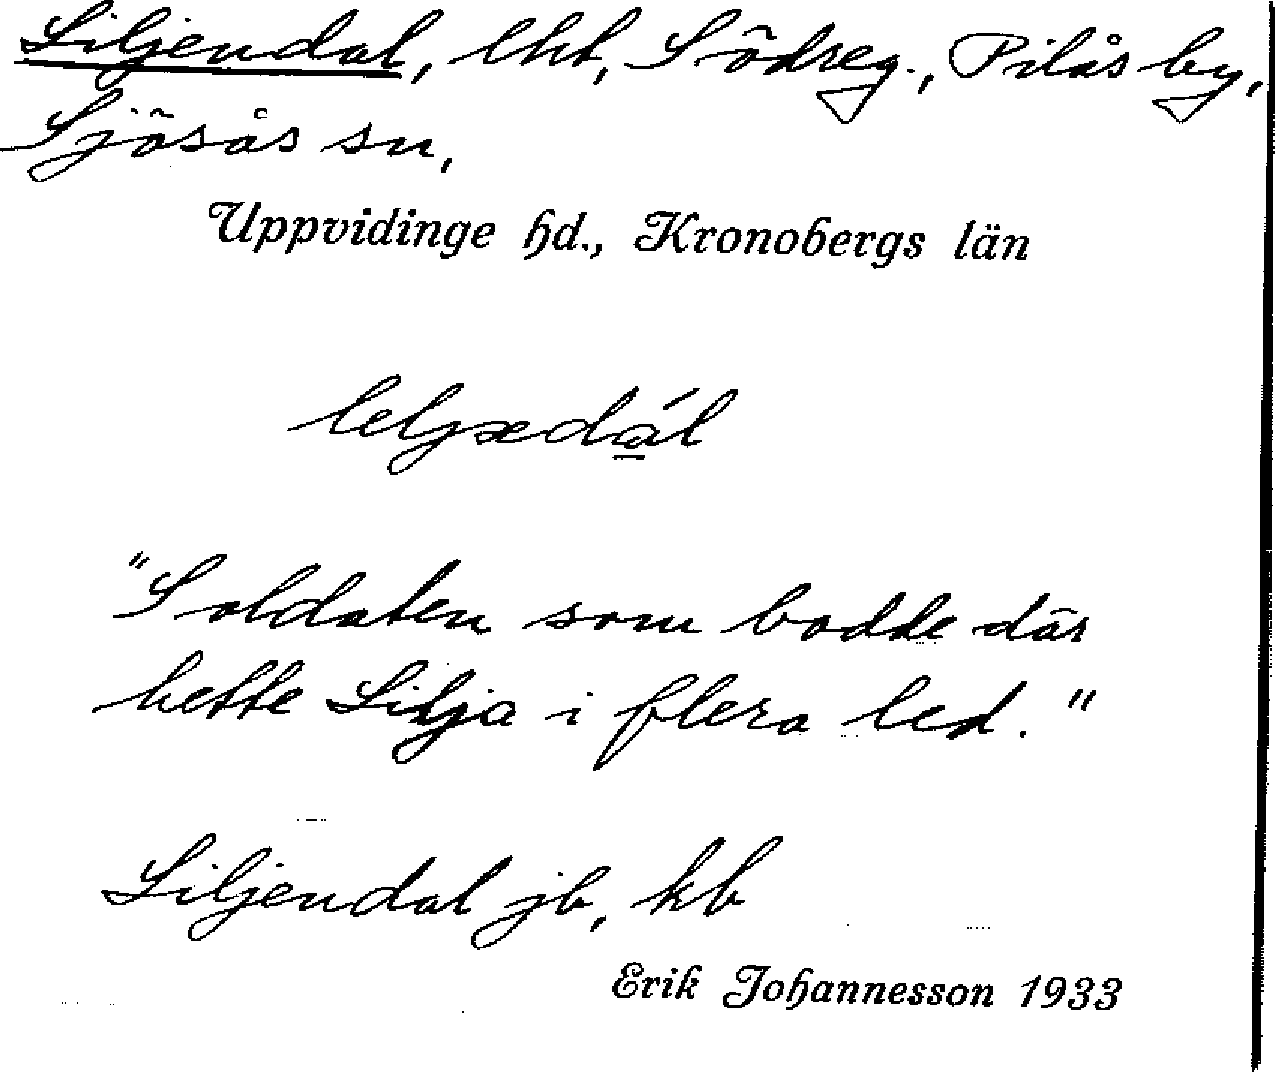 Liljendal, lht, Södreg., Pilås by,
Sjösås sn,
Uppvidinge hd., Kronobergs län
leljedál
"Soldaten som bodde där
hette Lilja i flera led."
Liljendal jb, kb
Erik Johannesson 1933